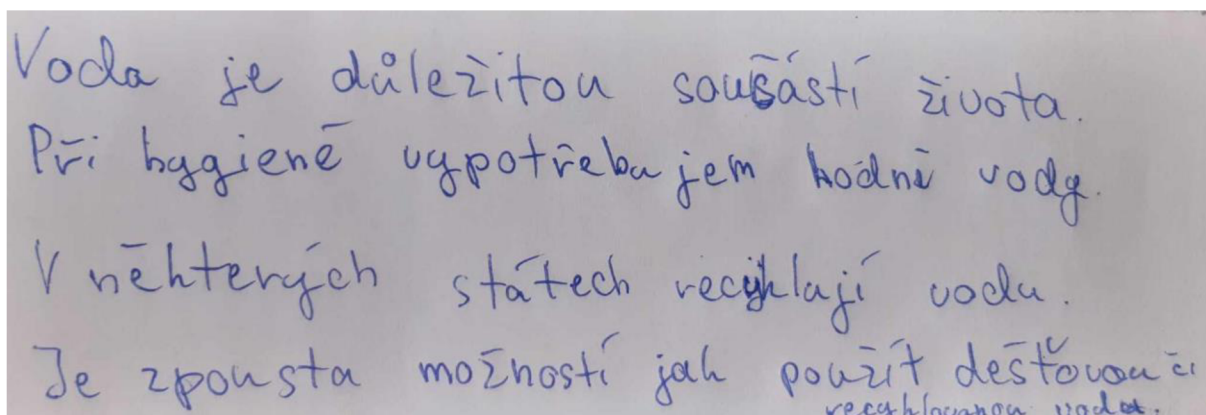 Voda je důležitou soušástí života.
Při hygieně vypotřebujem hodně vody.
V některých státech recyklají vodu.
Je zpousta možností jak použít dešťovou či
recyklovanou vodu.